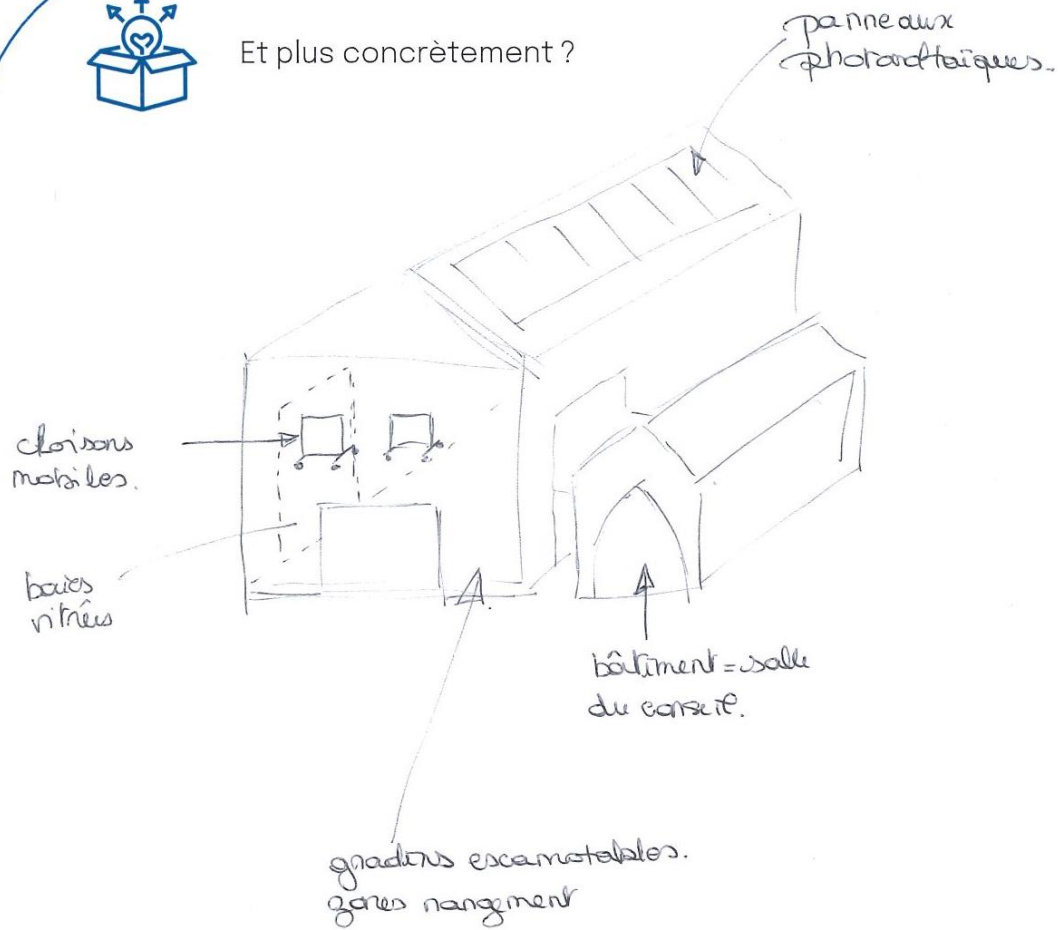 Et plus concrètement ?
panneaux
photovoltaïques.
cloisons
mobiles.
baies
vitrées
bâtiment = salle
du conseil.
gradins escamotables.
zones rangement